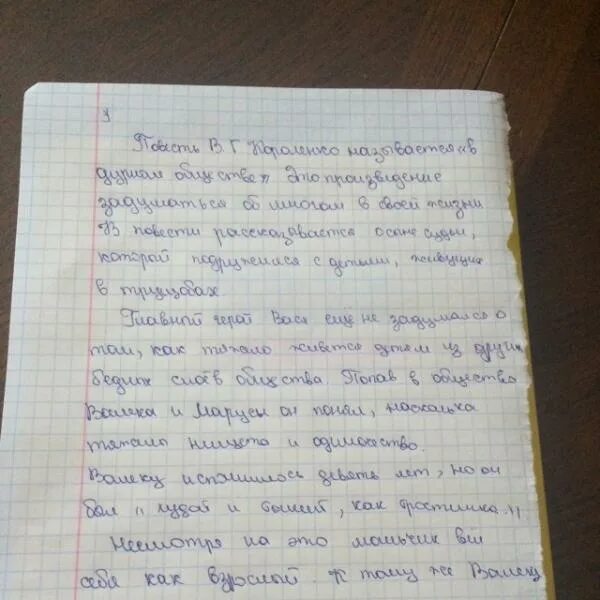 Повесть В. Г. Короленко называется "в
дурном обществе" Это произведение
задуматься об многом в своей жизни
В повести рассказывается о сыне судьи,
который подружился с детьми, живущих
в трущобах.
Главный герой Вася ещё не задумался о
том, как тяжело живется детям из других
бедных слоёв общества. Попав в общество
Валека и Маруси он понял, насколька
тяжело нищета и одиночество.
Валеку исполнилось девять лет, но он
был "худой и тонкий, как тростинка."
Несмотря на это мальчик вёл
себя как взрослый. К тому же Валеку